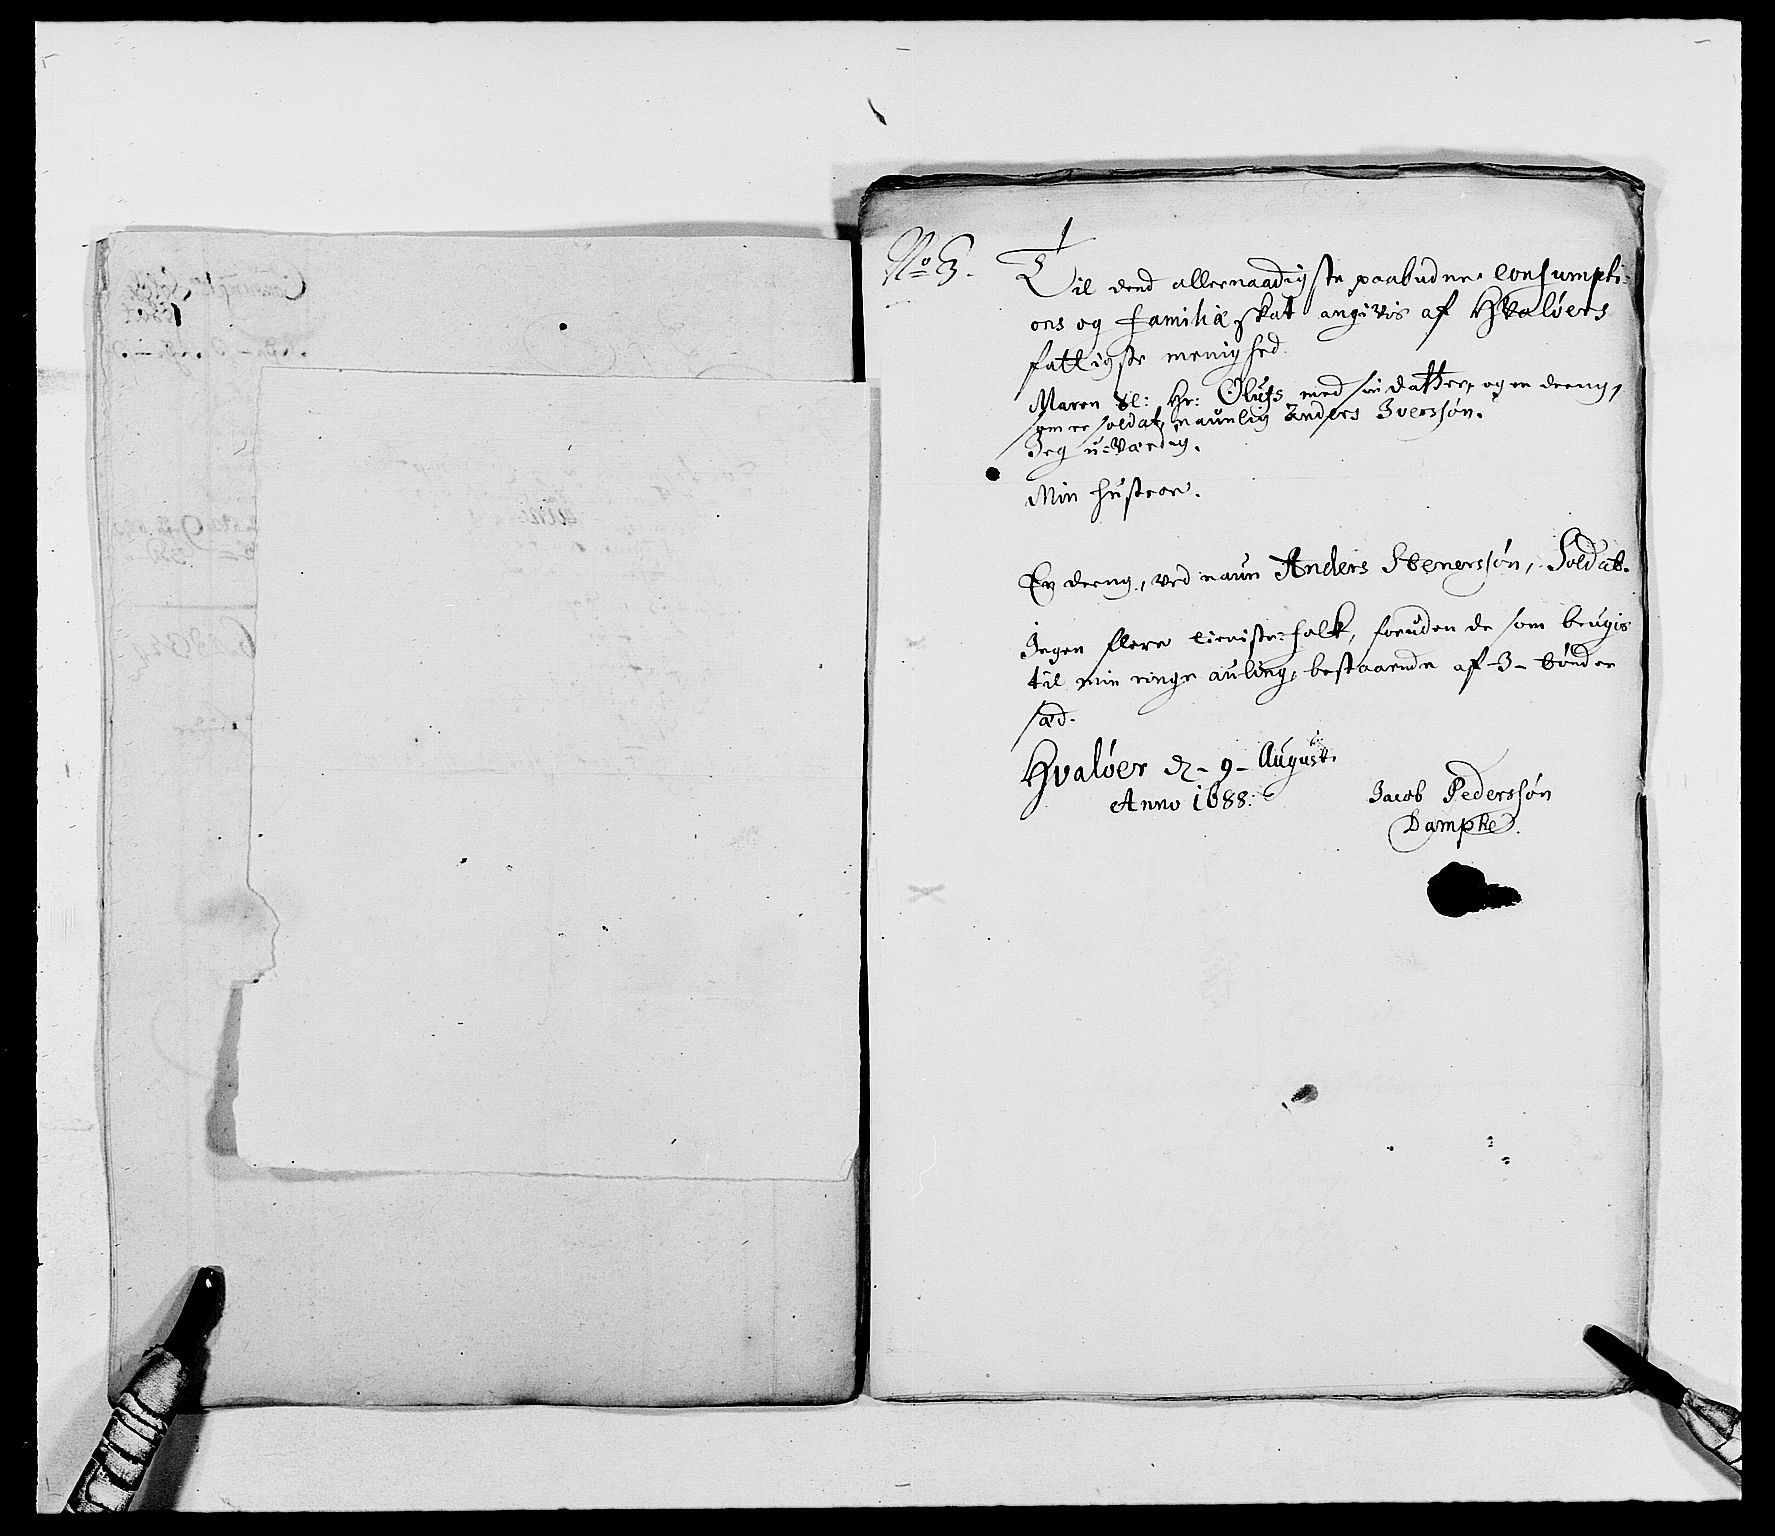 No 3.
Til dend allernaadigste paabudne consumpti-
ons og familiæ skat angivis af Hvaløers
fattigste menighed.
Maren Sl: Hr: Olufs med sin datter, og en dreng,
som er soldat, naunlig Anders Iverssøn.
Jeg u-værdig.
Min hustroe.
En dreng, ved naun Anders Stenerssøn, Soldat.
Ingen flere tieniste-folk, foruden de som brugis
til min ringe auling, bestaaende af 3 - tønder
sæd.
Hvaløer d. - 9 - August.
Anno 1688.
Jacob Pederssøn
Damphe.